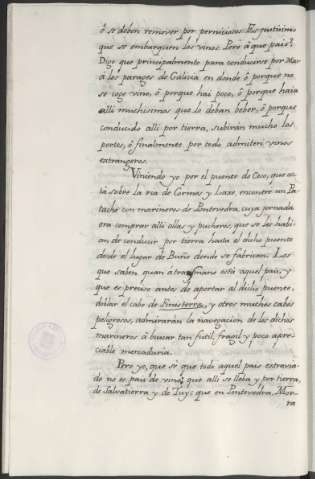 ó se deben remover por perniciosos. Es questiones
que se embarquen los vinos. Pero à que pais?
Digo que principalmente para conducirse por Mar
à los parages de Galicia en donde ò porque no
se coge vino, ò porque hai poco, ò porque haia
alli muchissimos que le deban beber, ò porque
conducido alli por tierra, subirán mucho los
portes, ò finalmente por todo admiten vinos
estrangeros.
Viniendo yo por el puente de Ceso, que es-
tá sobre la ria de Cormes y Laxe, encontré un Pa-
tache con marineros de Pontevedra, cuya jornada
era comprar alli ollas y pucheros, que se de habi-
an de conducir por tierra hasta el dicho puente
desde el lugar de Buño donde se fabrican. Los
que saben quan à trasmano está aquel pais, y
que es preciso antes de aportar al dicho puente,
doblar el cabo de Finisterra, y otros muchos cabos
peligrosos, admirarán la navegacion de los dichos
marineros à buscar tan futil, fragil y poco apre-
ciable mercaduria.
Pero yo, que sé que todo aquel pais extravia-
do no es pais de vino, que alli se lleba y por tierra,
de Salvatierra y de Tuy; que en Pontevedra, Mor-
ra